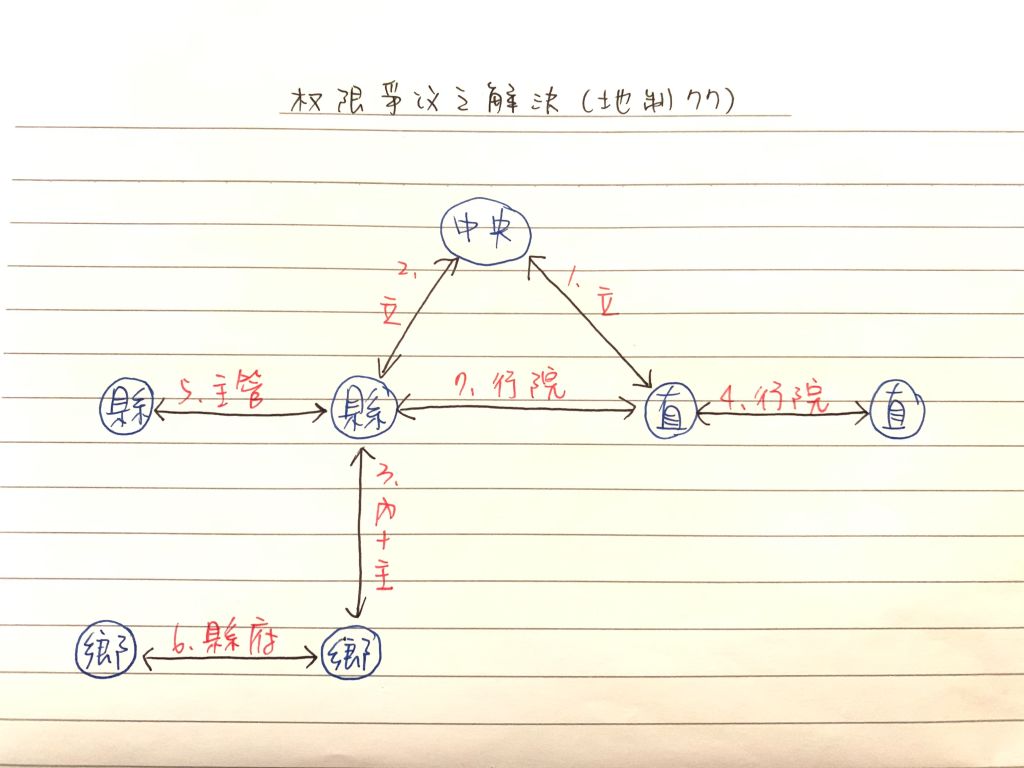 权限爭议之解決(地制77)
中央
2.
立
1.
立
縣
5.主管
縣
7.行院
直
4.行院
直
3.
內
+
主
鄉
6.縣府
鄉